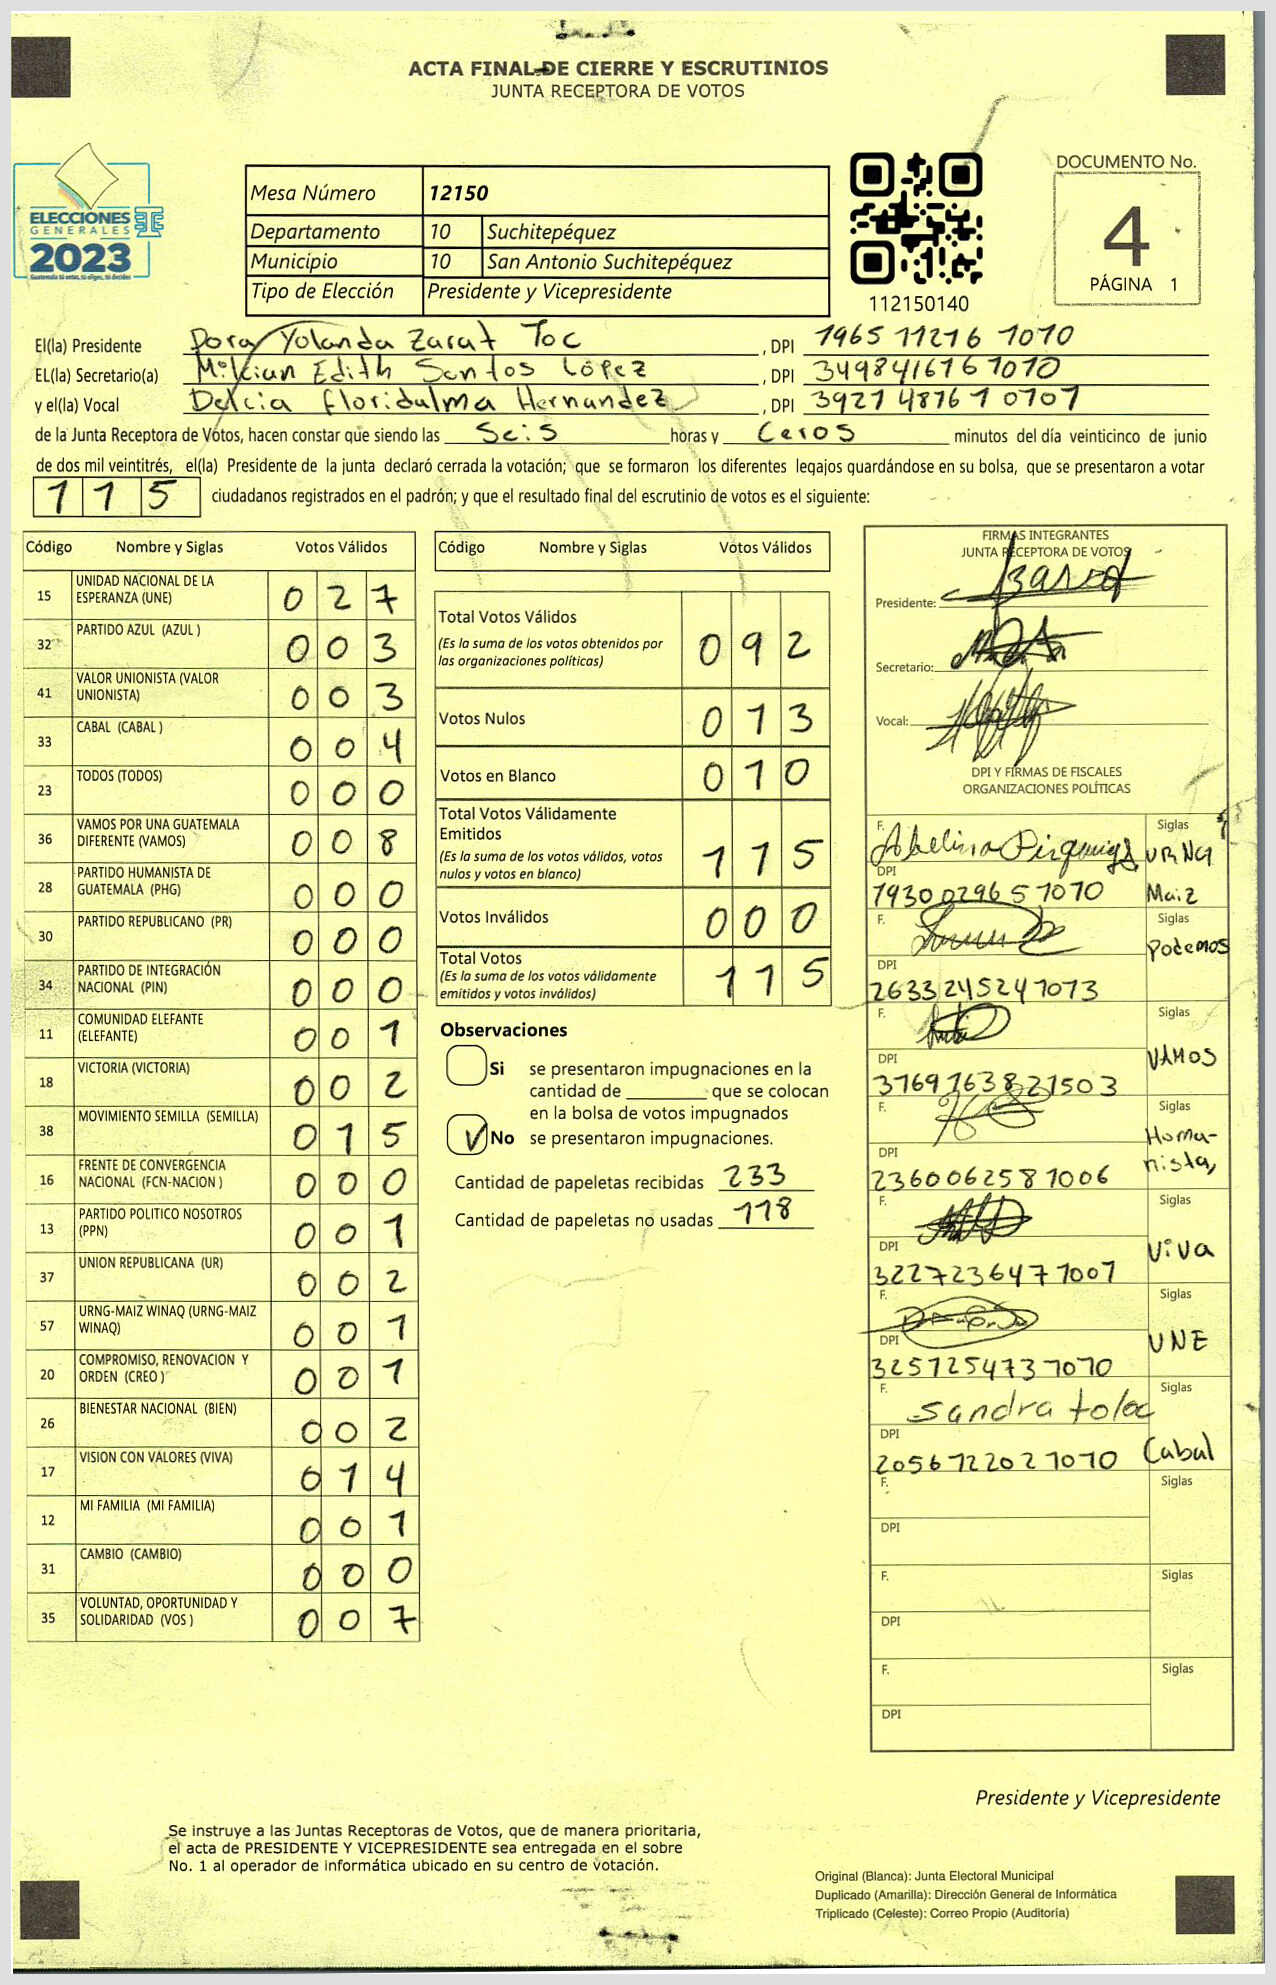 ACTA FINAL DE CIERRE Y ESCRUTINIOS
JUNTA RECEPTORA DE VOTOS
ELECCIONES
GENERALES
2023
Mesa Número 12150
Departamento 10 Suchitepéquez
Municipio 10 San Antonio Suchitepéquez
Tipo de Elección Presidente y Vicepresidente
112150140
DOCUMENTO No.
4
PÁGINA 1
El(la) Presidente Dora Yolanda Zarat Toc, DPI 1965 11216 1010
EL(la) Secretario(a) Milcian Edith Santos López, DPI 349841616 1010
y el(la) Vocal Delcia Floridalma Hernandez, DPI 3921 48761 0101
de la Junta Receptora de Votos, hacen constar que siendo las Seis horas y Ceros minutos del día veinticinco de junio
de dos mil veintitrés, el(la) Presidente de la junta declaró cerrada la votación; que se formaron los diferentes legajos guardándose en su bolsa, que se presentaron a votar
115 ciudadanos registrados en el padrón; y que el resultado final del escrutinio de votos es el siguiente:
Código Nombre y Siglas Votos Válidos
15 UNIDAD NACIONAL DE LA ESPERANZA (UNE) 027
32 PARTIDO AZUL (AZUL ) 003
41 VALOR UNIONISTA (VALOR UNIONISTA) 003
33 CABAL (CABAL ) 004
23 TODOS (TODOS) 000
36 VAMOS POR UNA GUATEMALA DIFERENTE (VAMOS) 008
28 PARTIDO HUMANISTA DE GUATEMALA (PHG) 000
30 PARTIDO REPUBLICANO (PR) 000
34 PARTIDO DE INTEGRACIÓN NACIONAL (PIN) 000
11 COMUNIDAD ELEFANTE (ELEFANTE) 001
18 VICTORIA (VICTORIA) 002
38 MOVIMIENTO SEMILLA (SEMILLA) 015
16 FRENTE DE CONVERGENCIA NACIONAL (FCN-NACION ) 000
13 PARTIDO POLITICO NOSOTROS (PPN) 001
37 UNION REPUBLICANA (UR) 002
57 URNG-MAIZ WINAQ (URNG-MAIZ WINAQ) 001
20 COMPROMISO, RENOVACION Y ORDEN (CREO ) 001
26 BIENESTAR NACIONAL (BIEN) 002
17 VISION CON VALORES (VIVA) 014
12 MI FAMILIA (MI FAMILIA) 001
31 CAMBIO (CAMBIO) 000
35 VOLUNTAD, OPORTUNIDAD Y SOLIDARIDAD (VOS ) 007
Código Nombre y Siglas Votos Válidos
Total Votos Válidos 092
(Es la suma de los votos obtenidos por
las organizaciones políticas)
Votos Nulos 013
Votos en Blanco 010
Total Votos Válidamente
Emitidos 115
(Es la suma de los votos válidos, votos
nulos y votos en blanco)
Votos Inválidos 000
Total Votos 115
(Es la suma de los votos válidamente
emitidos y votos inválidos)
Observaciones
Si se presentaron impugnaciones en la
cantidad de ________ que se colocan
en la bolsa de votos impugnados
No se presentaron impugnaciones.
Cantidad de papeletas recibidas 233
Cantidad de papeletas no usadas 118
FIRMAS INTEGRANTES
JUNTA RECEPTORA DE VOTOS
Presidente:
Secretario:
Vocal:
DPI Y FIRMAS DE FISCALES
ORGANIZACIONES POLÍTICAS
F. Abelina Siglas URNG
DPI 1930 0296 5 1010 Maiz
F. Siglas Podemos
DPI 2633 24524 1013
F. Siglas VAMOS
DPI 3169 1638 21503
F. Siglas Homa-
nista,
DPI 236006258 1006
F. Siglas ViVa
DPI 322723647 1001
F. Siglas UNE
DPI 325125473 1010
F. Sandra toloc Siglas Cabal
DPI 205612202 1010
F. Siglas
DPI
F. Siglas
DPI
F. Siglas
DPI
Presidente y Vicepresidente
Se instruye a las Juntas Receptoras de Votos, que de manera prioritaria,
el acta de PRESIDENTE Y VICEPRESIDENTE sea entregada en el sobre
No. 1 al operador de informática ubicado en su centro de votación.
Original (Blanca): Junta Electoral Municipal
Duplicado (Amarilla): Dirección General de Informática
Triplicado (Celeste): Correo Propio (Auditoría)